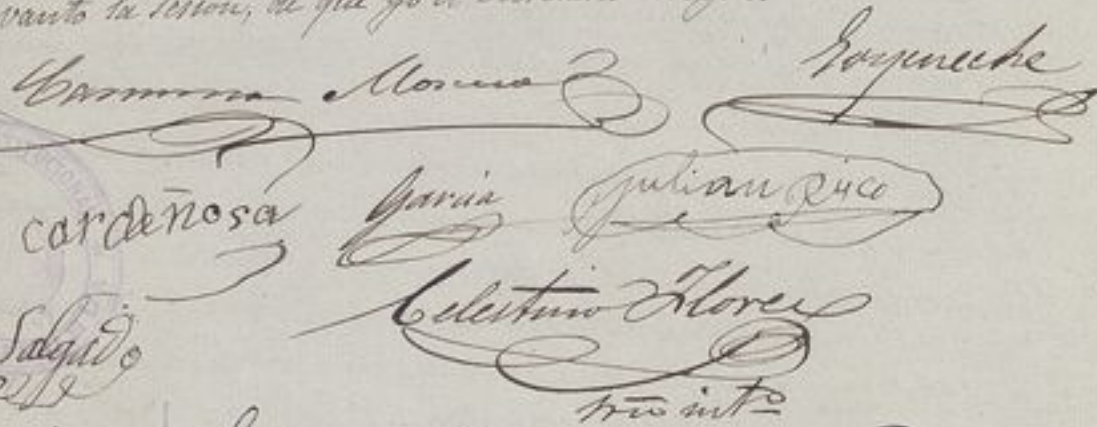 levantó la sesión, de que yo el
Moreno Goyeneche
cardeñosa García Julian Rico
Celestino Flores
Salgado
srio intº